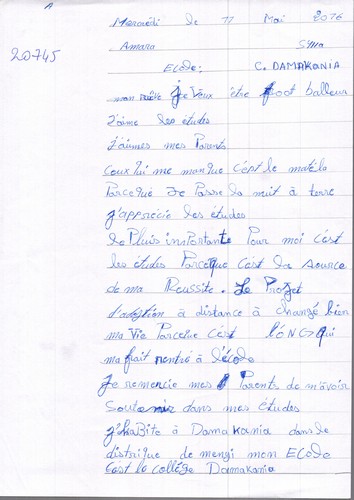 A
Mercredi le 11 Mai 2016
20745
Amara Syma
Ecole: C. DAMAKANIA
mon rêve Je Veux être foot balleur
J'aime les études
J'aimes mes Parents
Ceux lui me manque c'est le matéla
Parceque Je Passe la nuit à terre
J'apprécie les études
le Pluis importante Pour moi c'est
les études Parceque C'est la source
de ma Reussite. Le Projet
d'adoption à distance à changé bien
ma Vie Parceque C'est l'ONG qui
ma fiait rentré à l'école
Je remercie mes Parents de m'avoir
Soutenir dans mes études
J'habite à Damakania dans le
distrique de menzi mon Ecole
C'est le collège Damakania